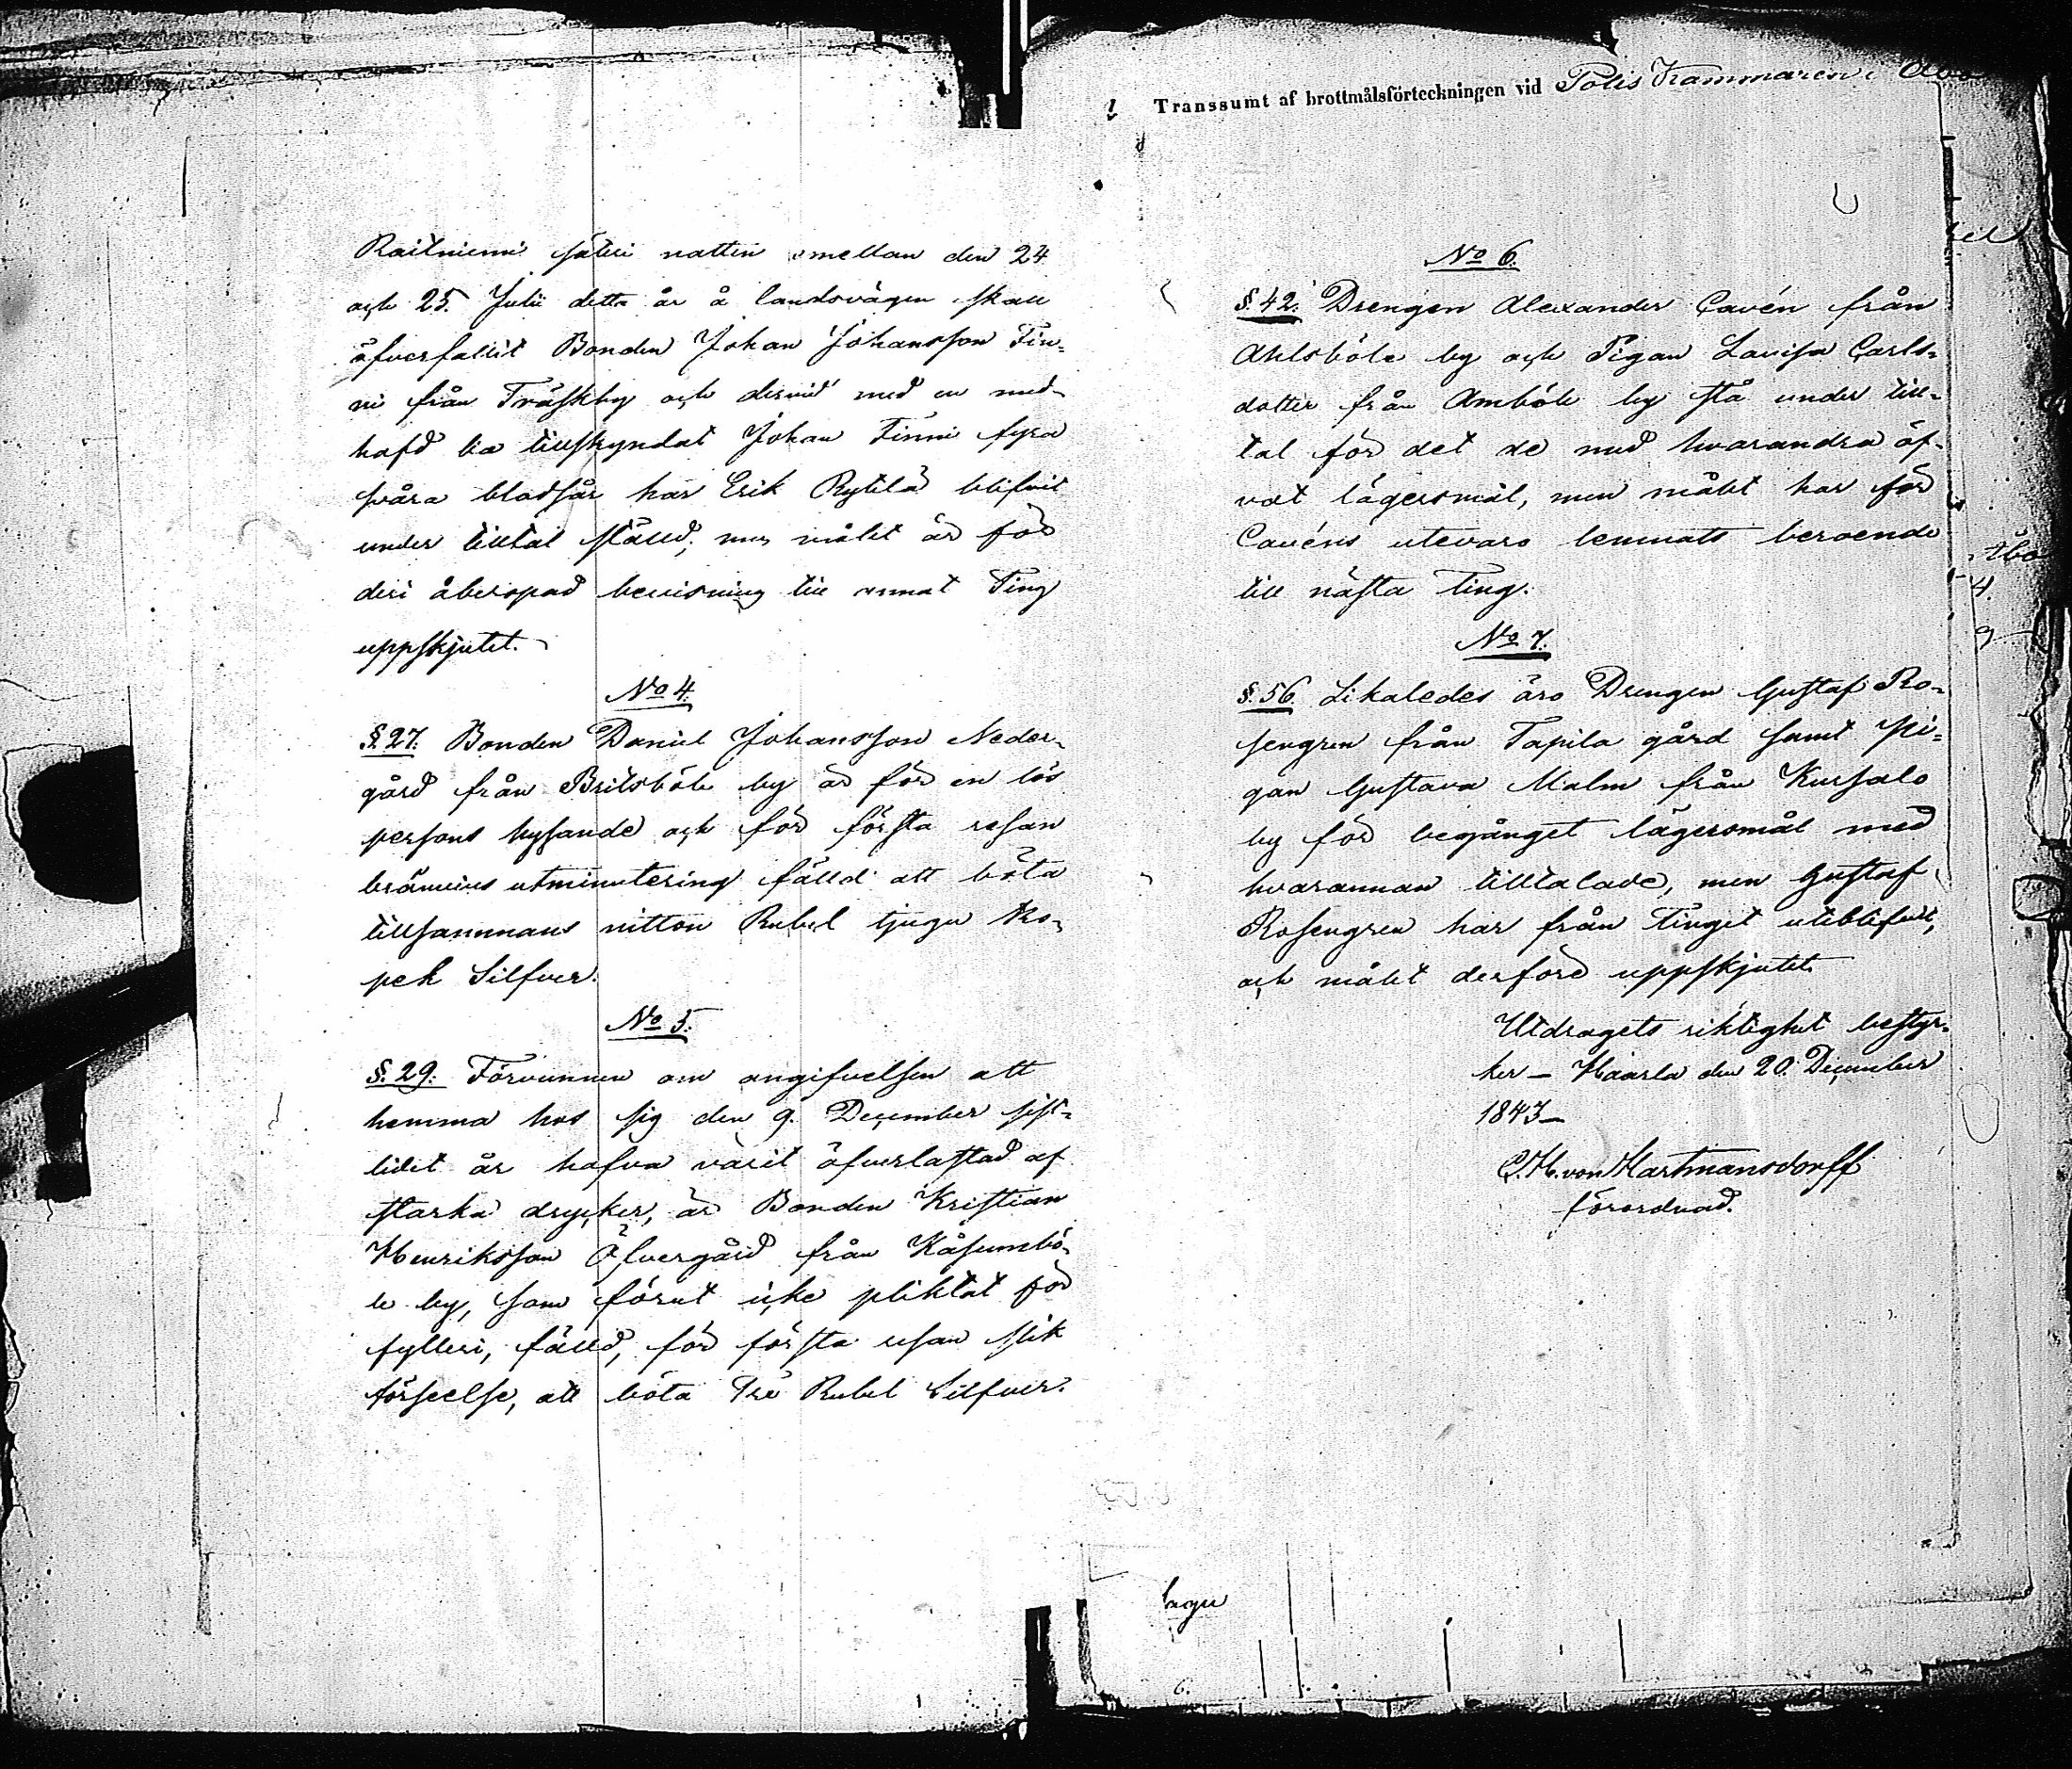 Raitniemi säteri natten emellan den 24
och 25. Julii detta år å landsvägen skall
öfverfallit Bonden Johan Johansson Fin-
ni från Träskby och dervid med en med-
hafd lia tillskyndat Johan Finni fyra
svåra blodsår har Erik Rytilä blifvit
under tilltal ställd; men målet är för
deri åberopad bevisning till annat Ting
uppskjutet.
No 4.
§.27. Bonden Daniel Johansson Neder-
gård från Britsböle by är för en lös
persons hysande och för första resan
brännvins utminutering fälld att böta
tillsammans nitton Rubel tjugu ko-
pek Silfver.
No 5.
§.29. Förvunnen om angifvelsen att
hemma hos sig den 9. December sist-
lidet år hafva varit öfverlastad af
starka drycker, är Bonden Kristian
Henriksson Öfvergård från Kåsumbö-
le by, som förut icke pliktat för
fylleri, fälld, för första resan slik
förseelse, att böta Tre Rubel Silfver.
Transsumt af brottmålsförteckningen vid Polis Kammaren i Åbo
No 6.
§.42. Drengen Alexander Cavén från
Ahlsböle by och Pigan Lovisa Carls-
dotter från Amböle by stå under till-
tal för det de med hvarandra öf-
vat lägersmål, men målet har för
Cavéns utevaro lemnats beroende
till nästa Ting.
No 7.
§.56. Likaledes äro Drengen Gustaf Ro-
sengren från Tapila gård samt Pi-
gan Gustava Malm från Kursalo
by för begånget lägersmål med
hvarannan tilltalade, men Gustaf
Rosengren har från Tinget uteblifvit,
och målet derföre uppskjutet.
Utdragets riktighet bestyr-
ker – Haarla den 20. December
1843–
C.H. von Hartmansdorff
förordnad.